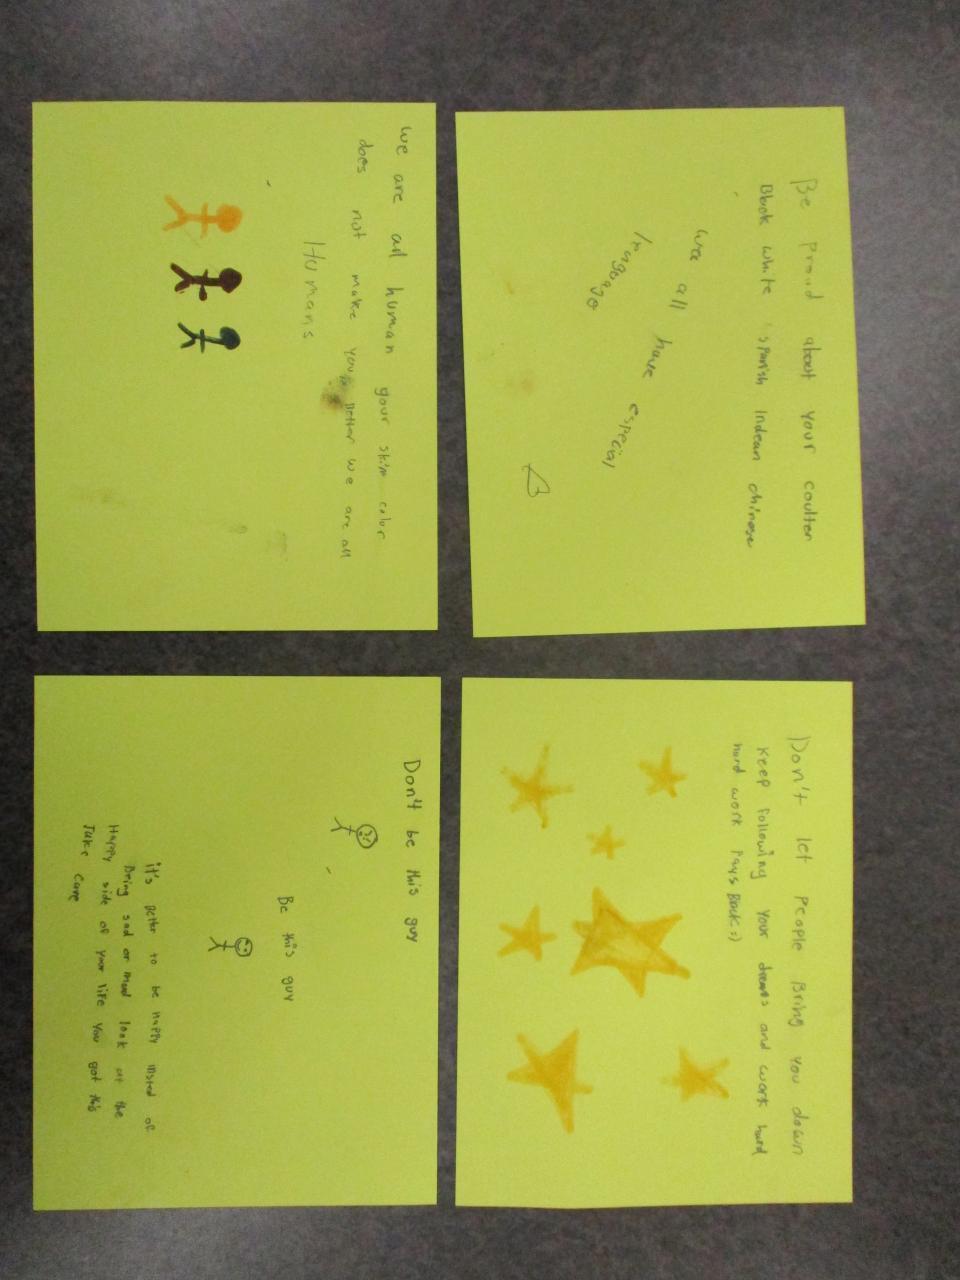 Be proud about your coulter
Black white spanish Indean chinese
we all have especial
We are all human your skin color
does not make you better we are all
Humans
Don't let people Bring you down
Keep following your dreams and work hard
hard work Pays Back :)
Don't be this guy
Be this guy
it's better to be happy insted of
Being sad or mad look at the
Happy side of your life you got this
Take Care